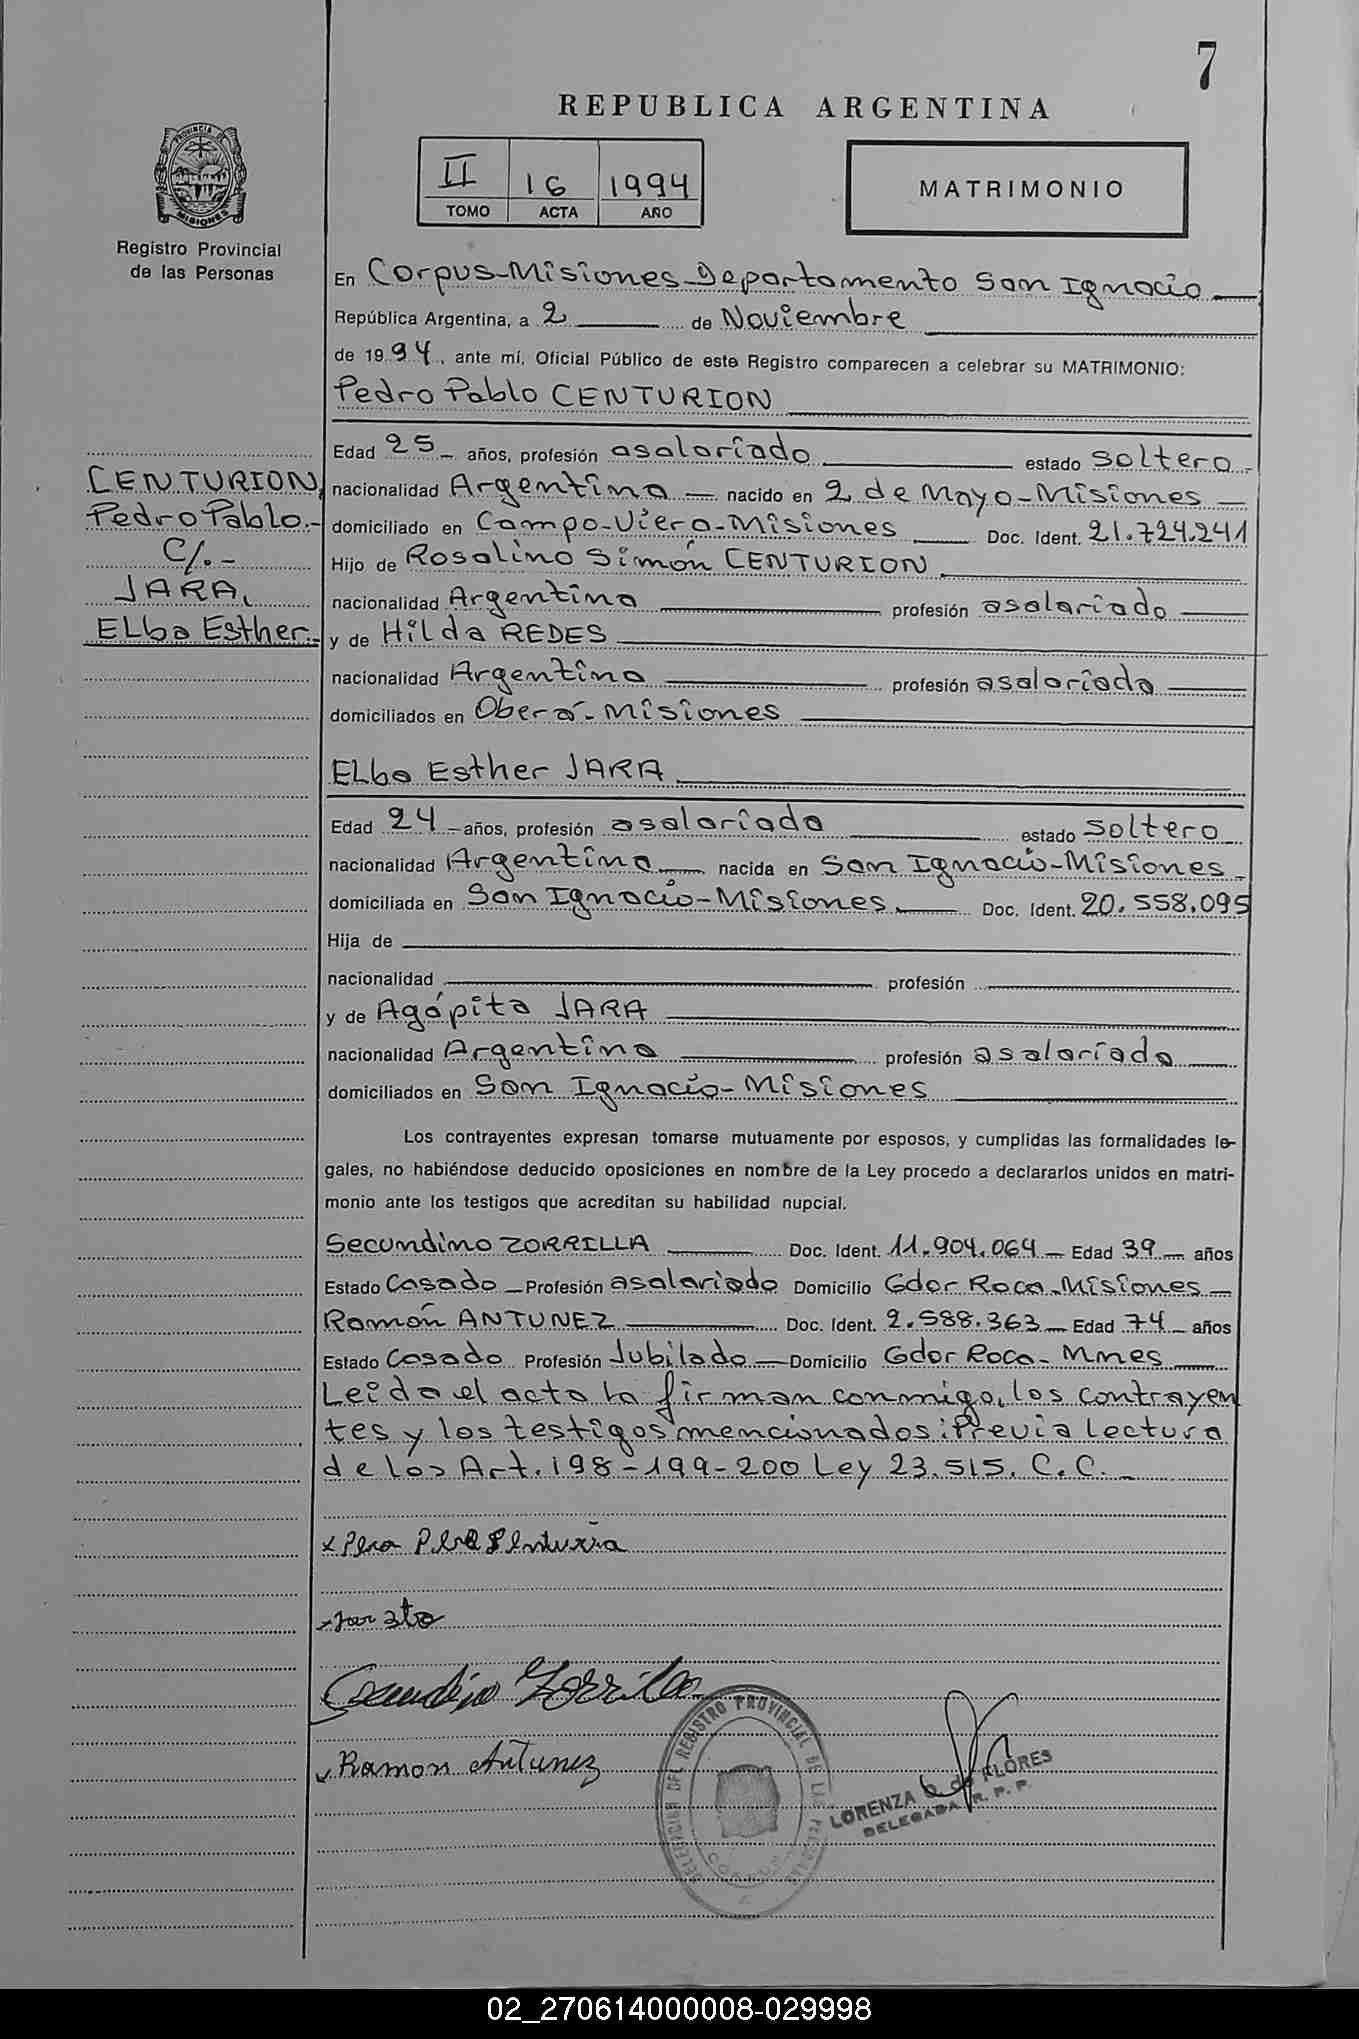 7
REPUBLICA ARGENTINA
II 16 1994
TOMO ACTA AÑO
MATRIMONIO
PROVINCIA DE
MISIONES
Registro Provincial
de las Personas
En Corpus-Misiones-Departamento San Ignacio
República Argentina, a 2 de Noviembre
de 1994, ante mí, Oficial Público de este Registro comparecen a celebrar su MATRIMONIO:
Pedro Pablo CENTURION
CENTURION,
Pedro Pablo.-
C/.-
JARA,
ELba Esther.-
Edad 25 - años, profesión asalariado estado soltero -
nacionalidad Argentina - nacido en 2 de Mayo-Misiones -
domiciliado en Campo-Viera-Misiones Doc. Ident. 21.724.241
Hijo de Rosalino Simón CENTURION
nacionalidad Argentina profesión asalariado
y de Hilda REDES
nacionalidad Argentina profesión asalariada
domiciliados en Oberá-Misiones
ELba Esther JARA
Edad 24 - años, profesión asalariada estado soltera
nacionalidad Argentina nacida en San Ignacio-Misiones -
domiciliada en San Ignacio-Misiones Doc. Ident. 20.558.095
Hija de
nacionalidad profesión
y de Agápita JARA
nacionalidad Argentina profesión asalariada
domiciliados en San Ignacio-Misiones
Los contrayentes expresan tomarse mutuamente por esposos, y cumplidas las formalidades le-
gales, no habiéndose deducido oposiciones en nombre de la Ley procedo a declararlos unidos en matri-
monio ante los testigos que acreditan su habilidad nupcial.
Secundino ZORRILLA Doc. Ident. 11.904.064 - Edad 39 - años
Estado Casado - Profesión asalariado Domicilio Gdor Roca-Misiones -
Ramón ANTUNEZ Doc. Ident. 2.588.363 - Edad 74 - años
Estado Casado Profesión Jubilado - Domicilio Gdor Roca- Mnes
Leida el acta la firman conmigo, los contrayen
tes y los testigos mencionados: Previa Lectura
de los Art. 198-199-200 Ley 23.515. C.C. -
Ramon Antunez
DELEGACION DEL REGISTRO PROVINCIAL DE LAS PERSONAS
CORPUS
LORENZA G. de FLORES
DELEGADA R. P. P.
02_270614000008-029998